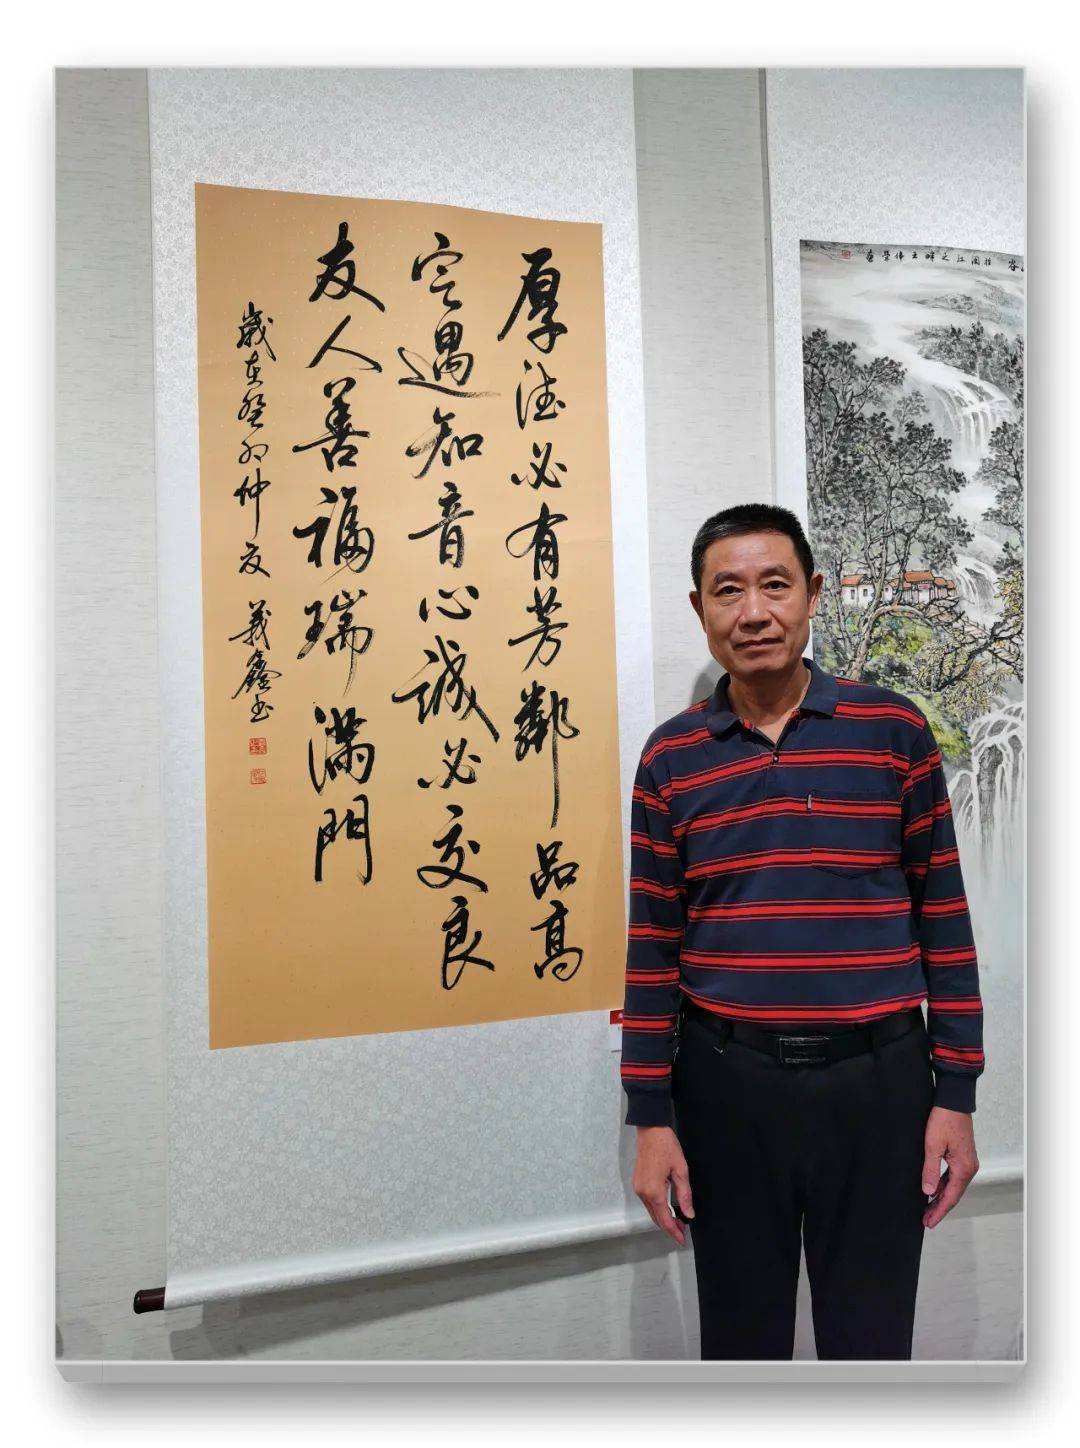 厚德必有芳鄰品高
定遇知音心誠必交良
友人善福瑞滿門
歲在癸卯仲夏 義鑫书